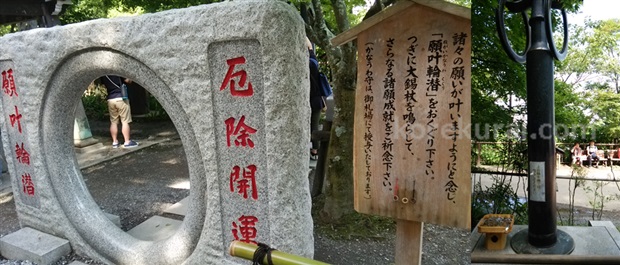 願叶輪潜
厄除開運
諸々の願いが叶いますようにと念じ、
「願叶輪潜」をおくぐり下さい。
つぎに大錫杖を鳴らして
さらなる諸願成就をご祈念下さい。
（かなうわ守は、御札場にて授与いたしております。）
korekurai.com